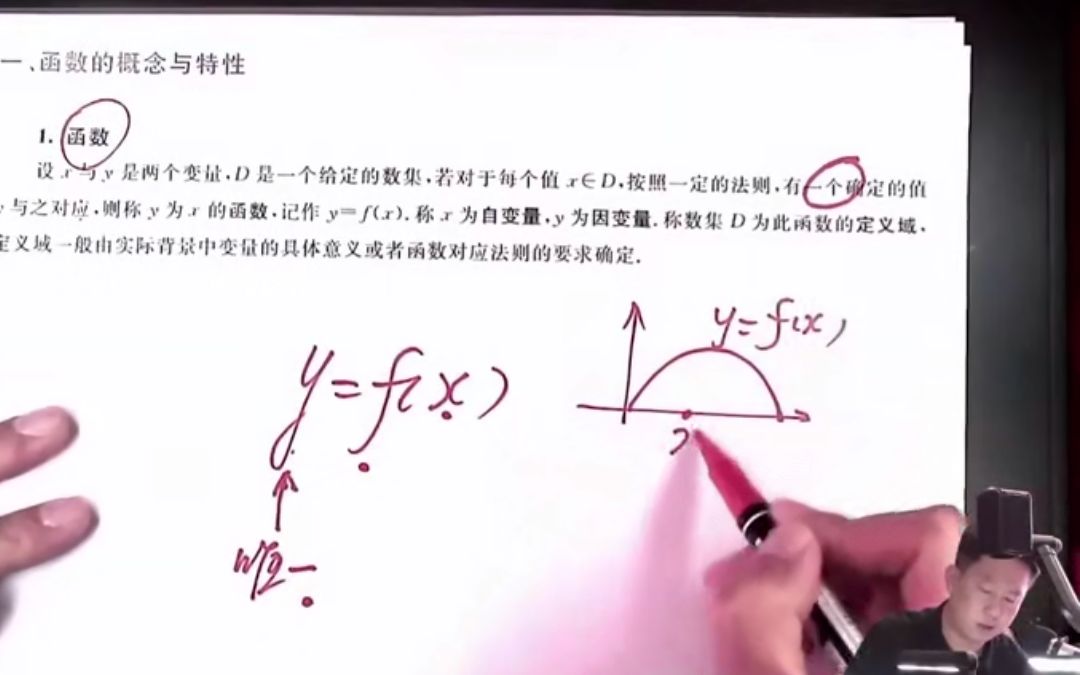 一、函数的概念与特性
1. 函数
设 x 与 y 是两个变量,D 是一个给定的数集,若对于每个值 x∈D,按照一定的法则,有一个确定的值
y 与之对应,则称 y 为 x 的函数,记作 y=f(x).称 x 为自变量,y 为因变量.称数集 D 为此函数的定义域,
定义域一般由实际背景中变量的具体意义或者函数对应法则的要求确定.
y=f(x)
y=f(x)
唯一